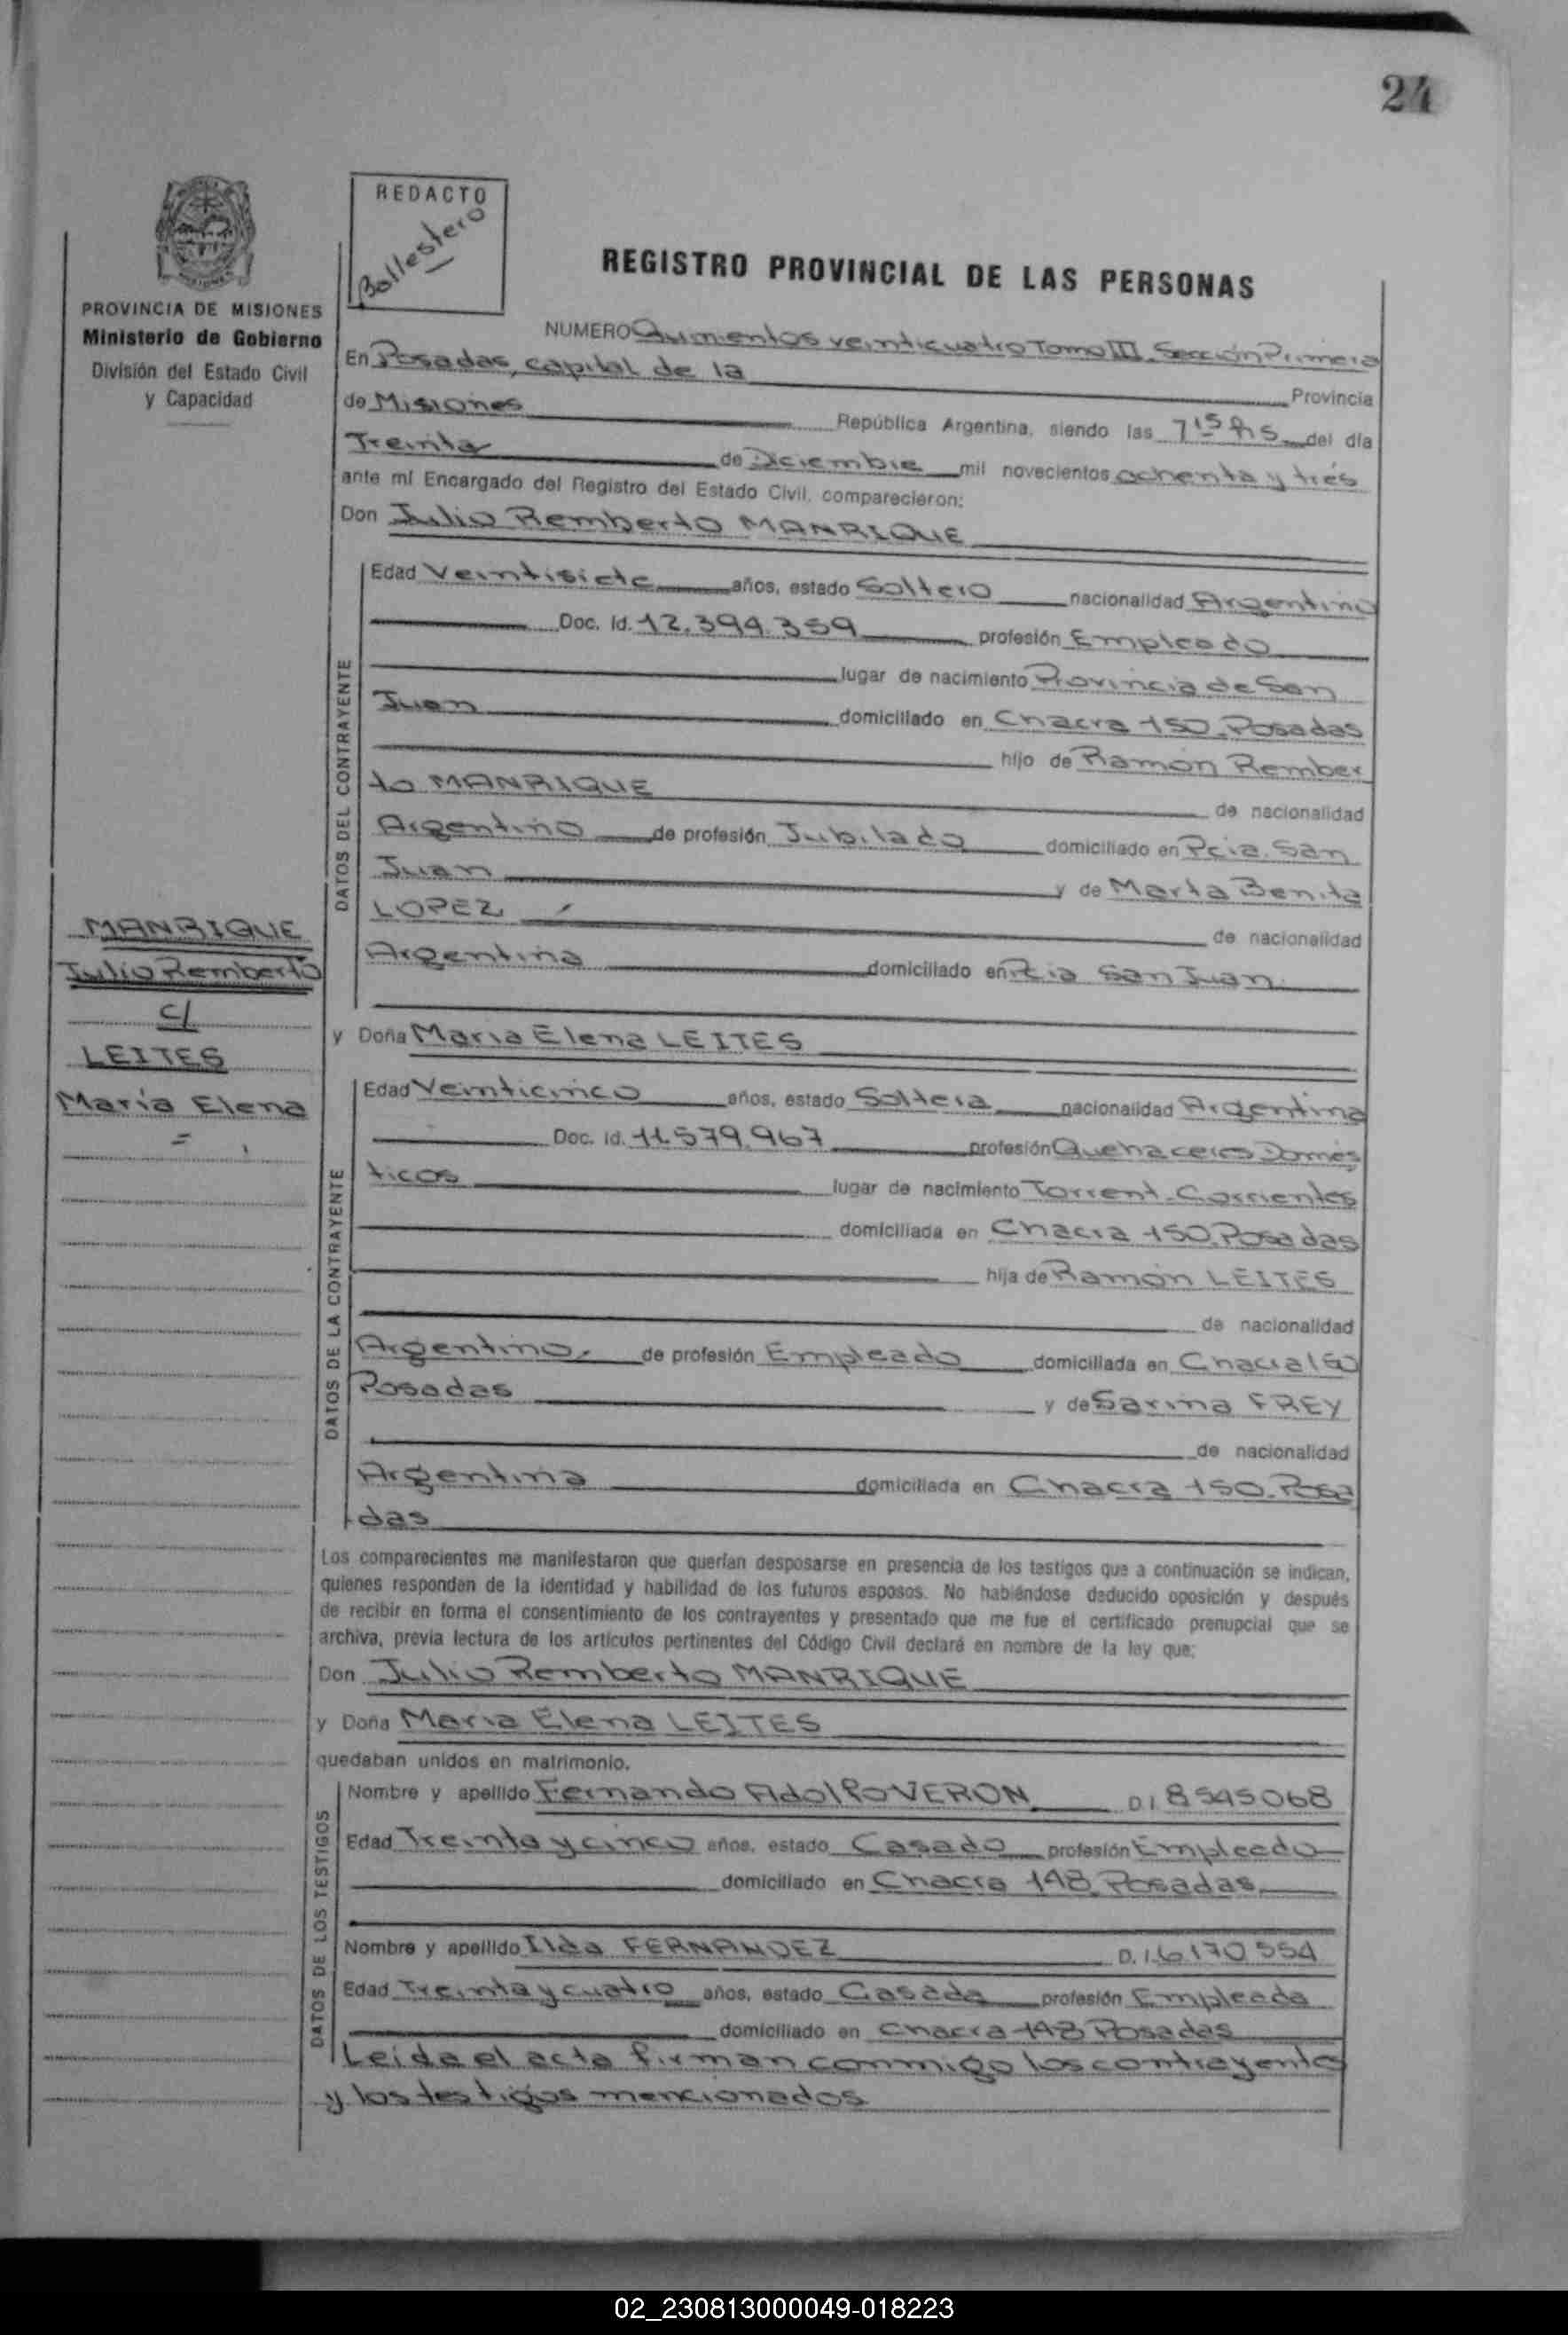 24
REDACTO
Ballestero
PROVINCIA DE MISIONES
Ministerio de Gobierno
División del Estado Civil
y Capacidad
REGISTRO PROVINCIAL DE LAS PERSONAS
NUMERO Quinientos veinticuatro Tomo III. Sección Primera
En Posadas, capital de la Provincia
de Misiones República Argentina, siendo las 7 15 hs del día
Treinta de Diciembre mil novecientos ochenta y tres
ante mí Encargado del Registro del Estado Civil, comparecieron:
Don Julio Remberto MANRIQUE
DATOS DEL CONTRAYENTE
Edad Veintisiete años, estado Soltero nacionalidad Argentino
Doc. Id. 12.394.359 profesión Empleado
lugar de nacimiento Provincia de San
Juan domiciliado en Chacra 150. Posadas
hijo de Ramón Rember
to MANRIQUE de nacionalidad
Argentino de profesión Jubilado domiciliado en Pcia. San
Juan y de Marta Benita
LOPEZ de nacionalidad
Argentina domiciliado en Pcia San Juan
MANRIQUE
Julio Remberto
c/
LEITES
María Elena
y Doña María Elena LEITES
DATOS DE LA CONTRAYENTE
Edad Veinticinco años, estado Soltera nacionalidad Argentina
Doc. Id. 11.579.967 profesión Quehaceres Domés
ticos lugar de nacimiento Torrent. Corrientes
domiciliada en Chacra 150. Posadas
hija de Ramón LEITES
de nacionalidad
Argentino. de profesión Empleado domiciliada en Chacra 150
Posadas y de Sarina FREY
de nacionalidad
Argentina domiciliada en Chacra 150. Posa
das
Los comparecientes me manifestaron que querían desposarse en presencia de los testigos que a continuación se indican,
quienes responden de la identidad y habilidad de los futuros esposos. No habiéndose deducido oposición y después
de recibir en forma el consentimiento de los contrayentes y presentado que me fue el certificado prenupcial que se
archiva, previa lectura de los artículos pertinentes del Código Civil declaré en nombre de la ley que:
Don Julio Remberto MANRIQUE
y Doña María Elena LEITES
quedaban unidos en matrimonio.
DATOS DE LOS TESTIGOS
Nombre y apellido Fernando Adolfo VERON D I 8545068
Edad Treinta y cinco años, estado Casado profesión Empleado
domiciliado en Chacra 148 Posadas
Nombre y apellido Ilda FERNANDEZ D. I. 6170554
Edad Treinta y cuatro años, estado Casada profesión Empleada
domiciliado en Chacra 148 Posadas
Leida el acta firman conmigo los contrayentes
y los testigos mencionados
02_230813000049-018223